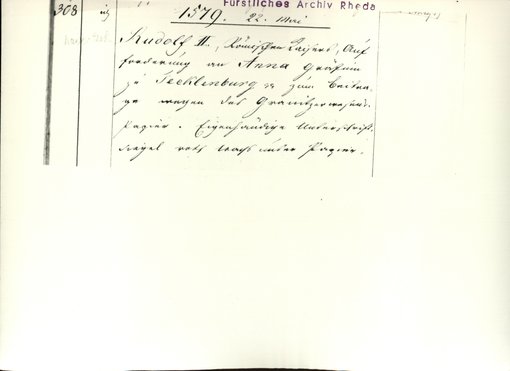 Fürstliches Archiv Rheda
308
1579. 22. Mai
Rudolf II., Römischen Kaisers, Auf
forderung an Anna Gräfin
zu Tecklenburg zum Beitra
ge wegen des Granitzerwesens.
Papier. Eigenhändige Unterschrift.
Siegel roth Wachs unter Papier.